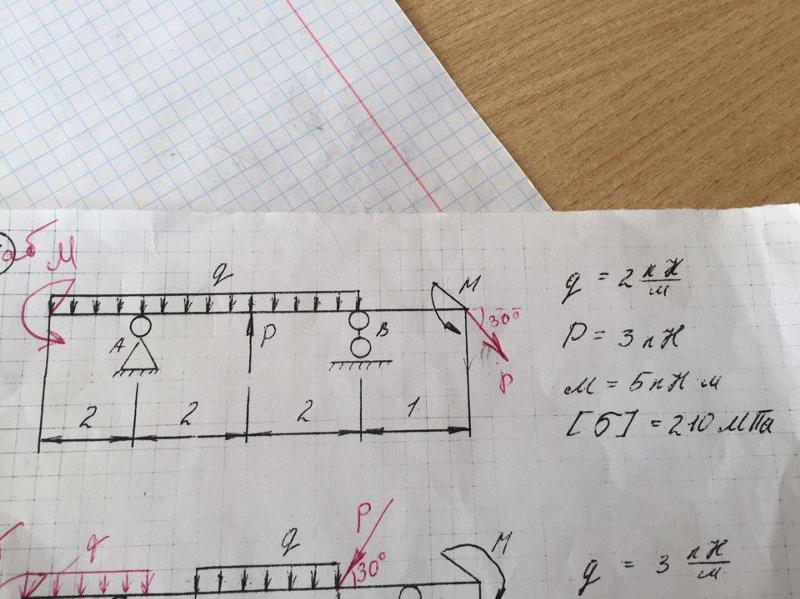 M
q
M
q = 2 кН/м
30°
A
P
B
P = 3 кН
P
M = 5 кН м
[σ] = 210 МПа
2 2 2 1
P
q
q
30°
M
q = 3 кН/м